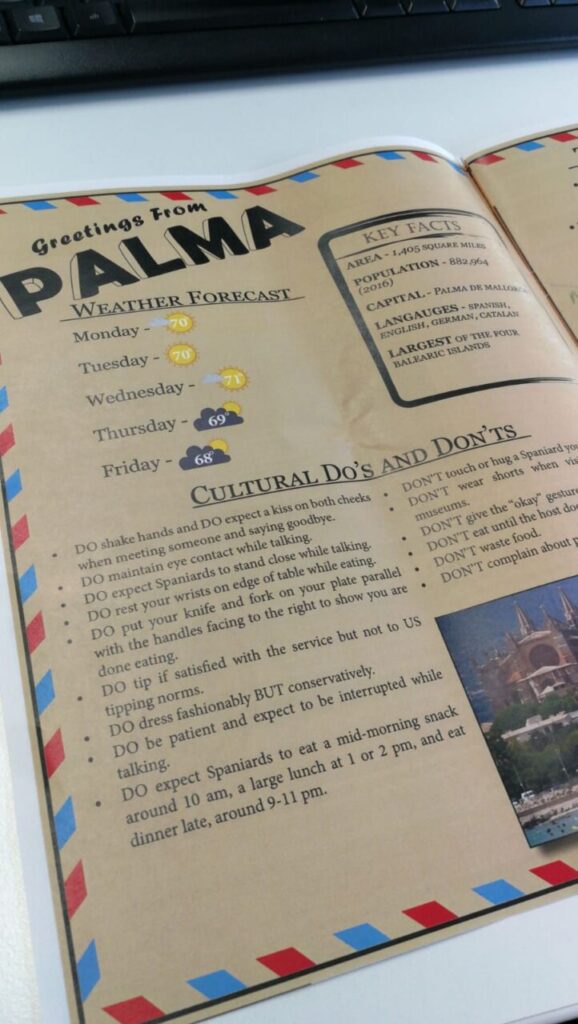 Greetings From
PALMA
WEATHER FORECAST
Monday - 70
Tuesday - 70
Wednesday - 71
Thursday - 69
Friday - 68
KEY FACTS
AREA - 1,405 SQUARE MILES
POPULATION - 882,964
(2016)
CAPITAL - PALMA DE MALLORCA
LANGAUGES - SPANISH,
ENGLISH, GERMAN, CATALAN
LARGEST OF THE FOUR
BALEARIC ISLANDS
CULTURAL DO'S AND DON'TS
• DO shake hands and DO expect a kiss on both cheeks
when meeting someone and saying goodbye.
• DO maintain eye contact while talking.
• DO expect Spaniards to stand close while talking.
• DO rest your wrists on edge of table while eating.
• DO put your knife and fork on your plate parallel
with the handles facing to the right to show you are
done eating.
• DO tip if satisfied with the service but not to US
tipping norms.
• DO dress fashionably BUT conservatively.
• DO be patient and expect to be interrupted while
talking.
• DO expect Spaniards to eat a mid-morning snack
around 10 am, a large lunch at 1 or 2 pm, and eat
dinner late, around 9-11 pm.
• DON'T touch or hug a Spaniard
• DON'T wear shorts when
museums.
• DON'T give the "okay"
• DON'T eat until the host
• DON'T waste food.
• DON'T complain about